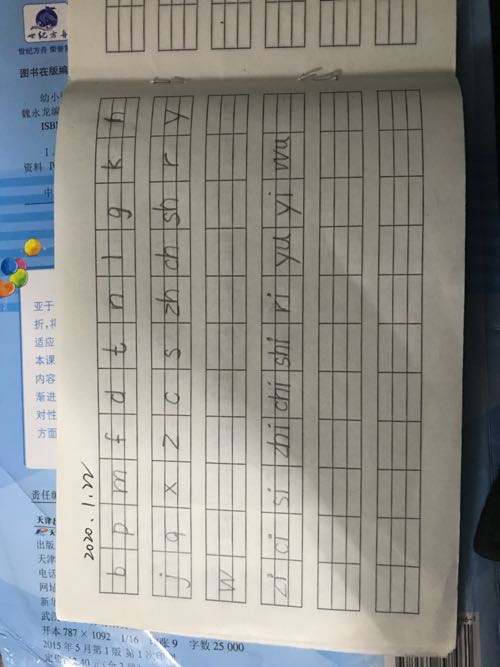 世纪方舟
世纪方舟 荣誉
图书在版编
幼小
魏永龙编
ISB
I.
资料 IV
中
亚于
折,将
适应
本课
内容
渐进
对性
方面
责任编
天津
出版
天津
电话
网址
新华
开本 787 × 1092 1/16 印张 9 字数 25 000
2015 年 5 月第 1 版 第 1 次印
2020.1.22
b p m f d t n l g k h
j q x z c s zh ch sh r y
w
zi ci si zhi chi shi ri yu yi wu